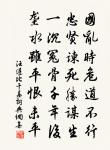 國亂時危道不行
忠賢諫死勝謀生
一沉冤骨千年後
壟水雖平恨未平
汪遵比干墓